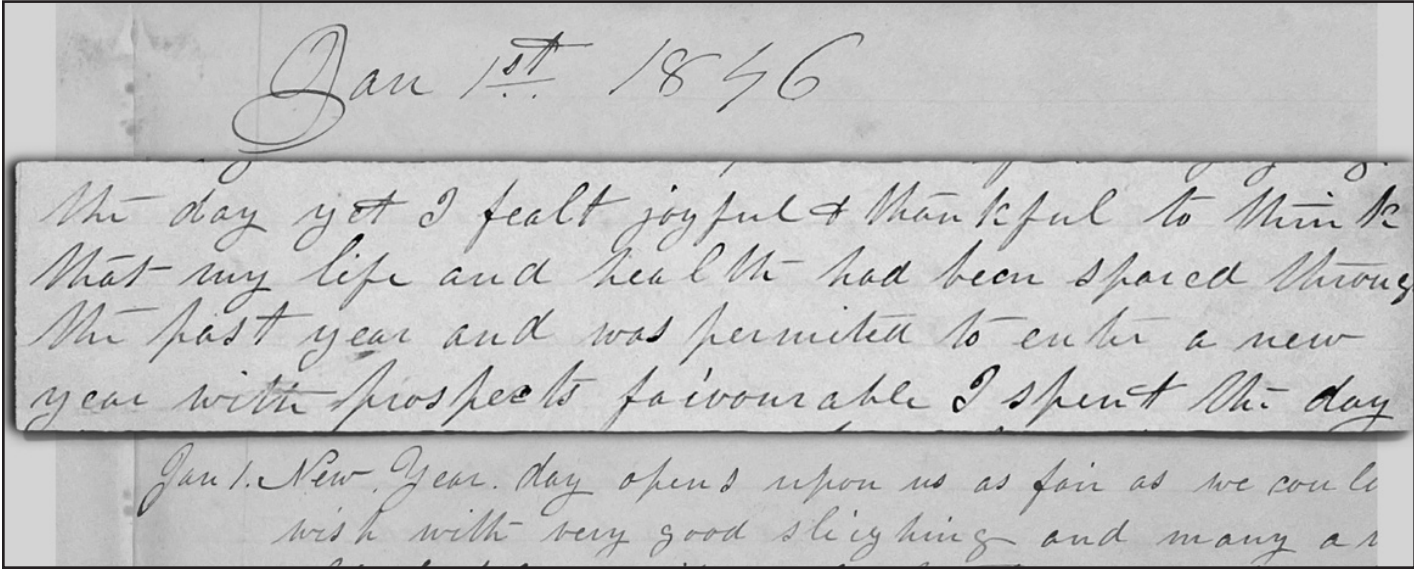 Jan 1st 1846
the day yet I fealt joyful & thankful to think
that my life and health had been spared throug
the past year and was permited to enter a new
year with prospects faivourable I spent the day
Jan 1. New Year. day opens upon us as fair as we coul
wish with very good sleighing and many a